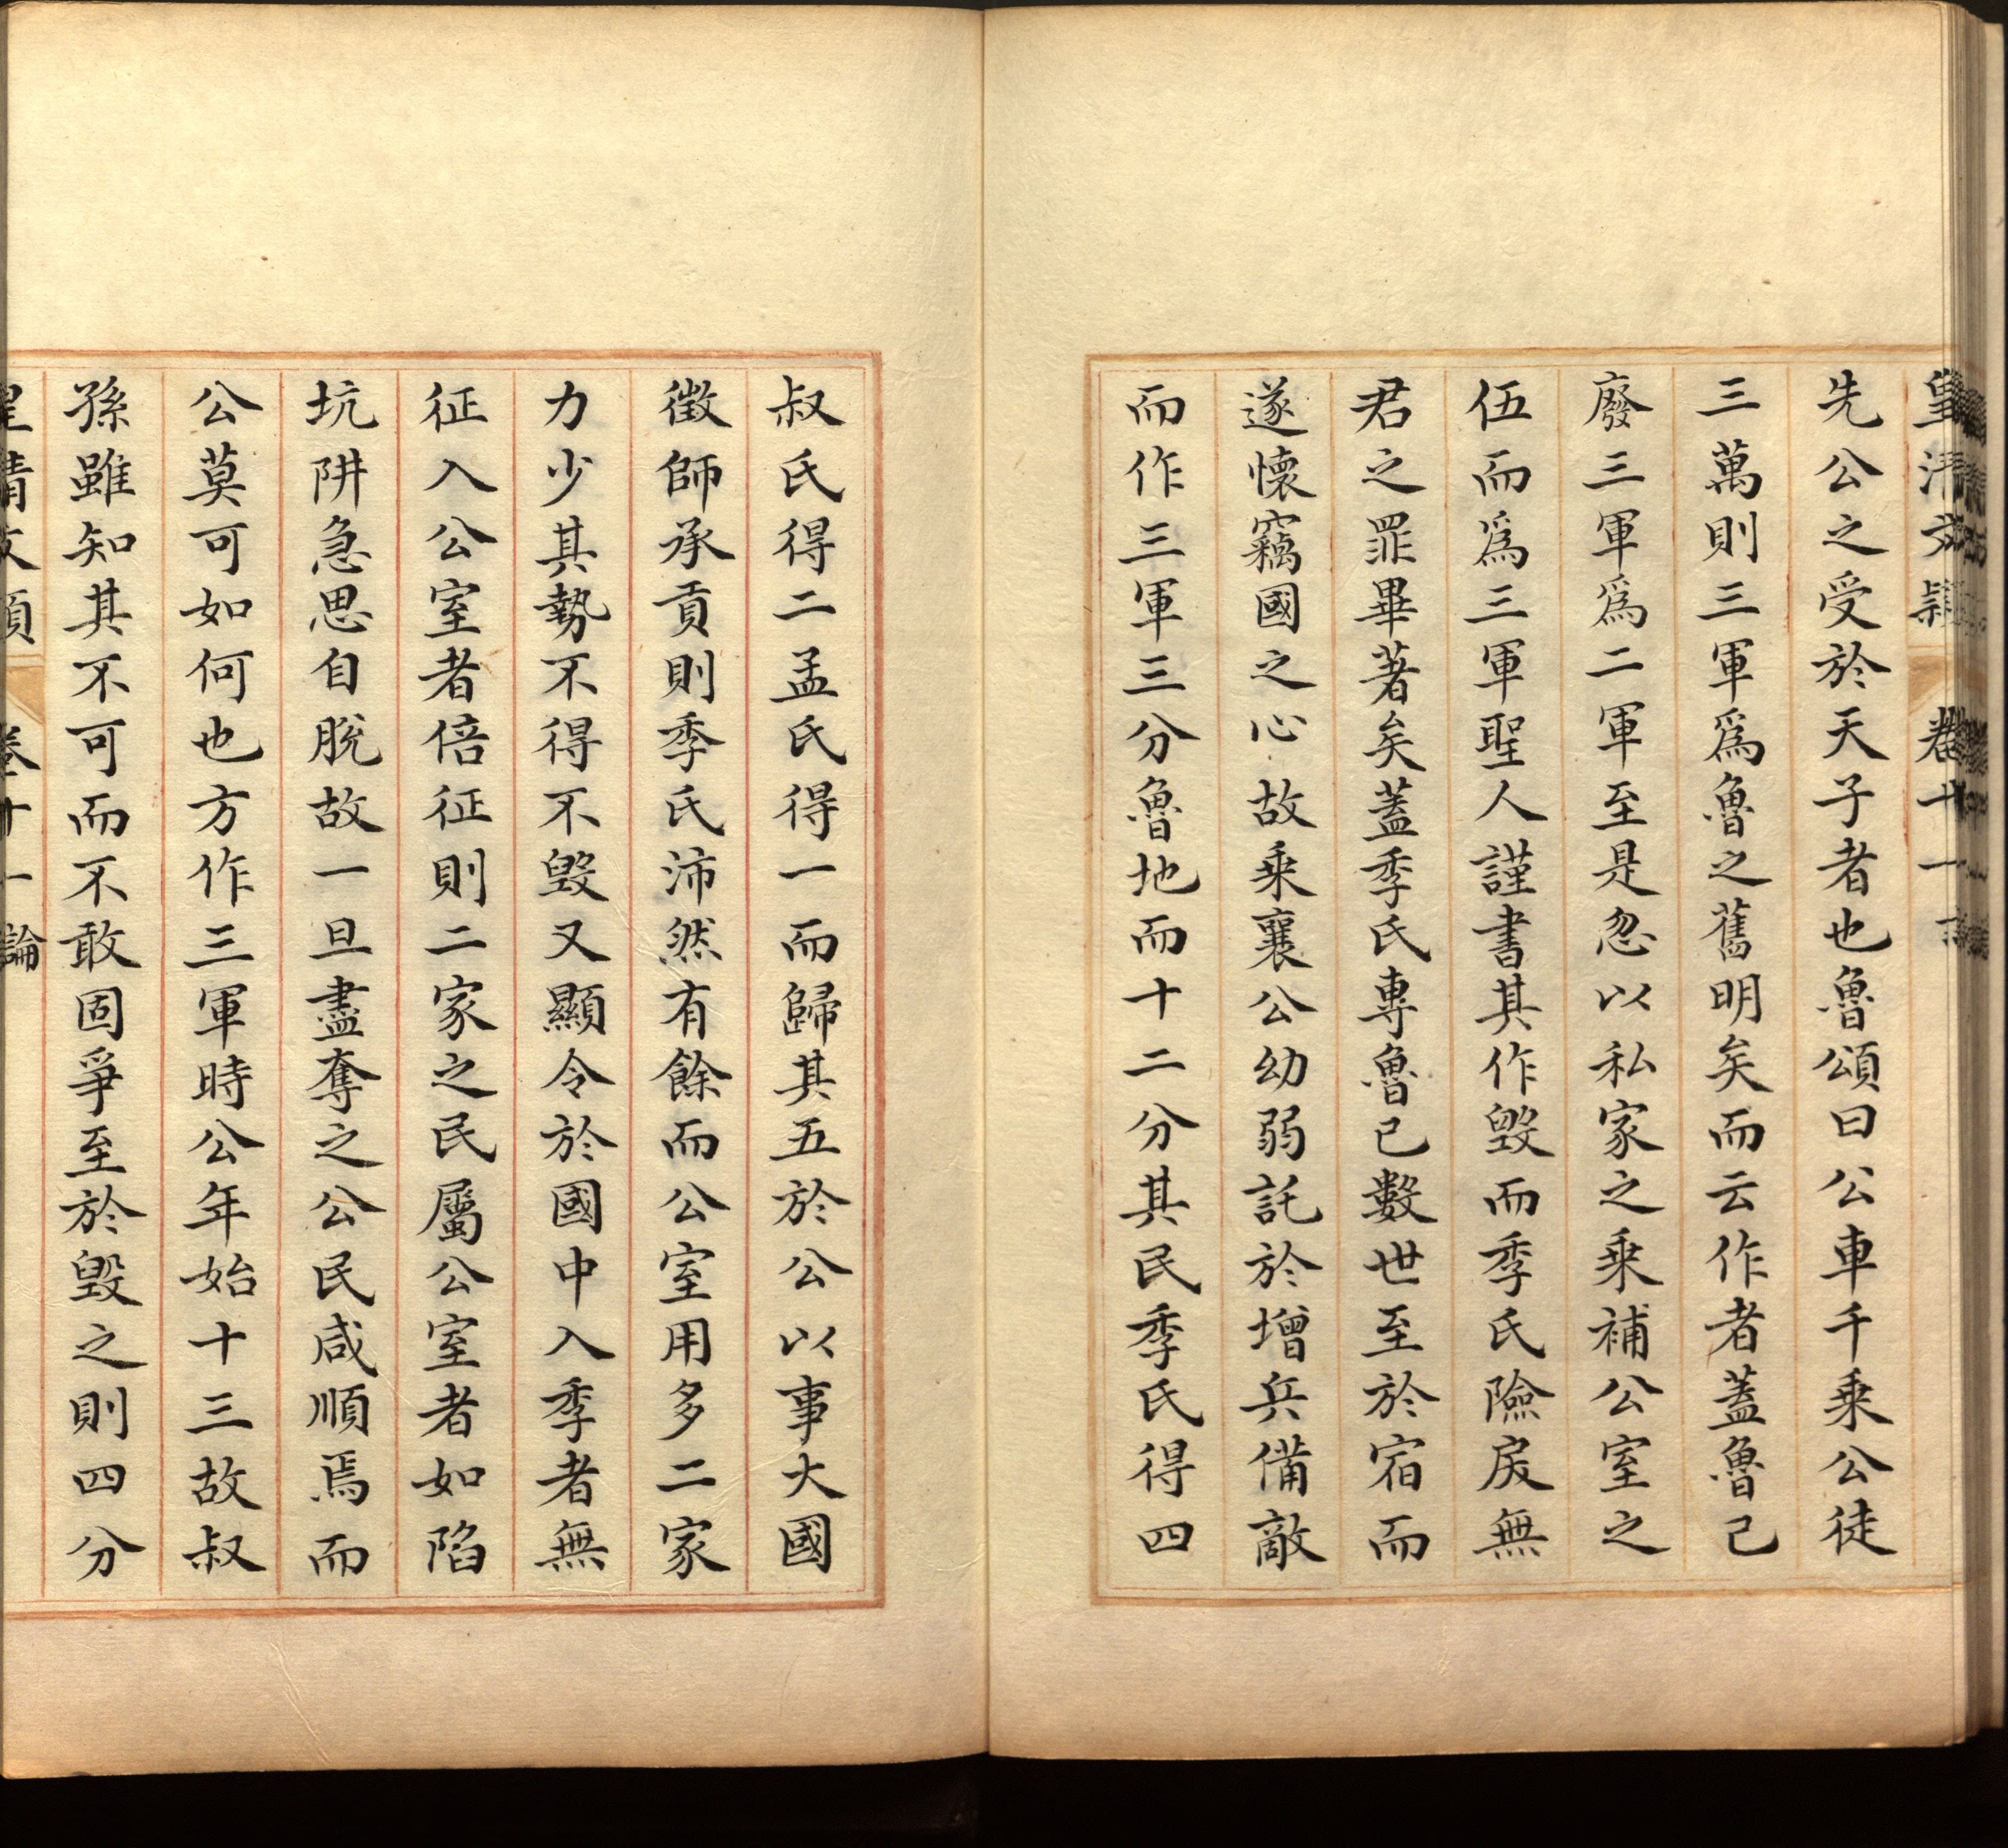 皇清文穎 卷十一
先公之受於天子者也魯頌曰公車千乘公徒
三萬則三軍爲魯之舊明矣而云作者蓋魯己
廢三軍爲二軍至是忽以私家之乘補公室之
伍而爲三軍聖人謹書其作毀而季氏險戾無
君之罪畢著矣蓋季氏專魯已數世至於宿而
遂懷竊國之心故乘襄公幼弱託於增兵備敵
而作三軍三分魯地而十二分其民季氏得四
叔氏得二孟氏得一而歸其五於公以事大國
徵師承貢則季氏沛然有餘而公室用多二家
力少其勢不得不毀又顯令於國中入季者無
征入公室者倍征則二家之民屬公室者如陷
坑阱急思自脫故一旦盡奪之公民咸順焉而
公莫可如何也方作三軍時公年始十三故叔
孫雖知其不可而不敢固爭至於毀之則四分
皇清文穎 卷十一 論